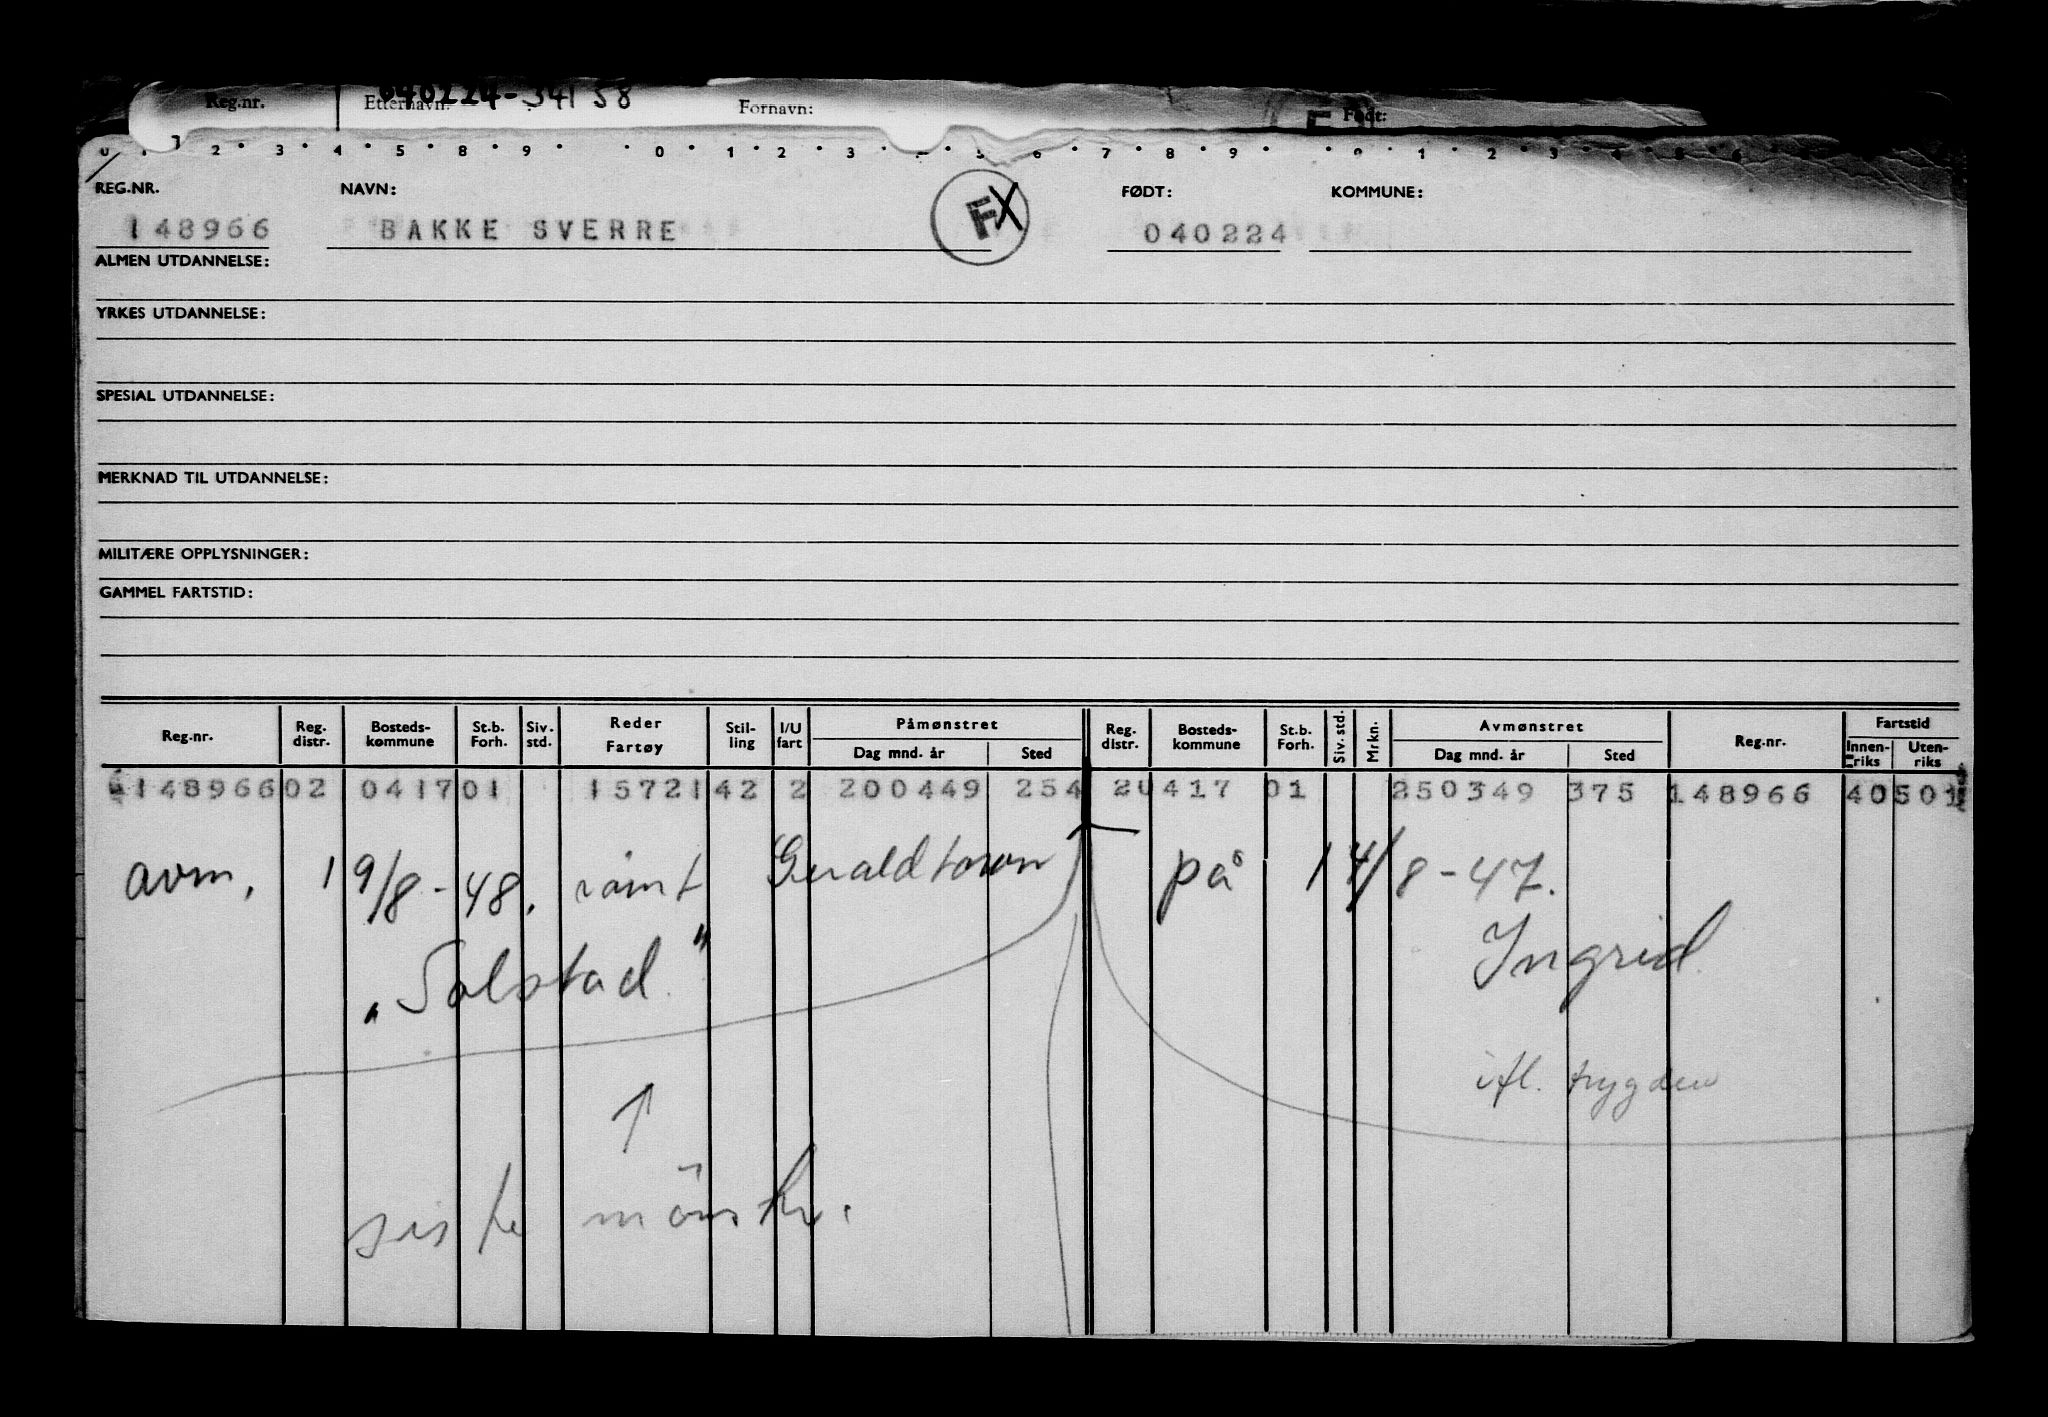 Reg.nr. Etternavn: 040224-34158 Fornavn: Født:
REG.NR. NAVN: FØDT: KOMMUNE:
148966 BAKKE SVERRE FX 040224
ALMEN UTDANNELSE:
YRKES UTDANNELSE:
SPESIAL UTDANNELSE:
MERKNAD TIL UTDANNELSE:
MILITÆRE OPPLYSNINGER:
GAMMEL FARTSTID:
Reg.nr. Reg. distr. Bosteds-kommune St.b. Forh. Siv. std. Reder Fartøy Stil-ling I/U fart Påmønstret Dag mnd. år Sted Reg. distr. Bosteds-kommune St.b. Forh. Siv. std. Mrkn. Avmønstret Dag mnd. år Sted Reg.nr. Fartstid Innen-riks Uten-riks
148966 02 0417 01 15721 42 2 200449 254 20 417 01 250349 375 148966 40 501
avm. 19/8-48. rømt Geraldtown på 14/8-47.
"Solstad" Ingrid
ifl. trygden
↑
siste mönstr.